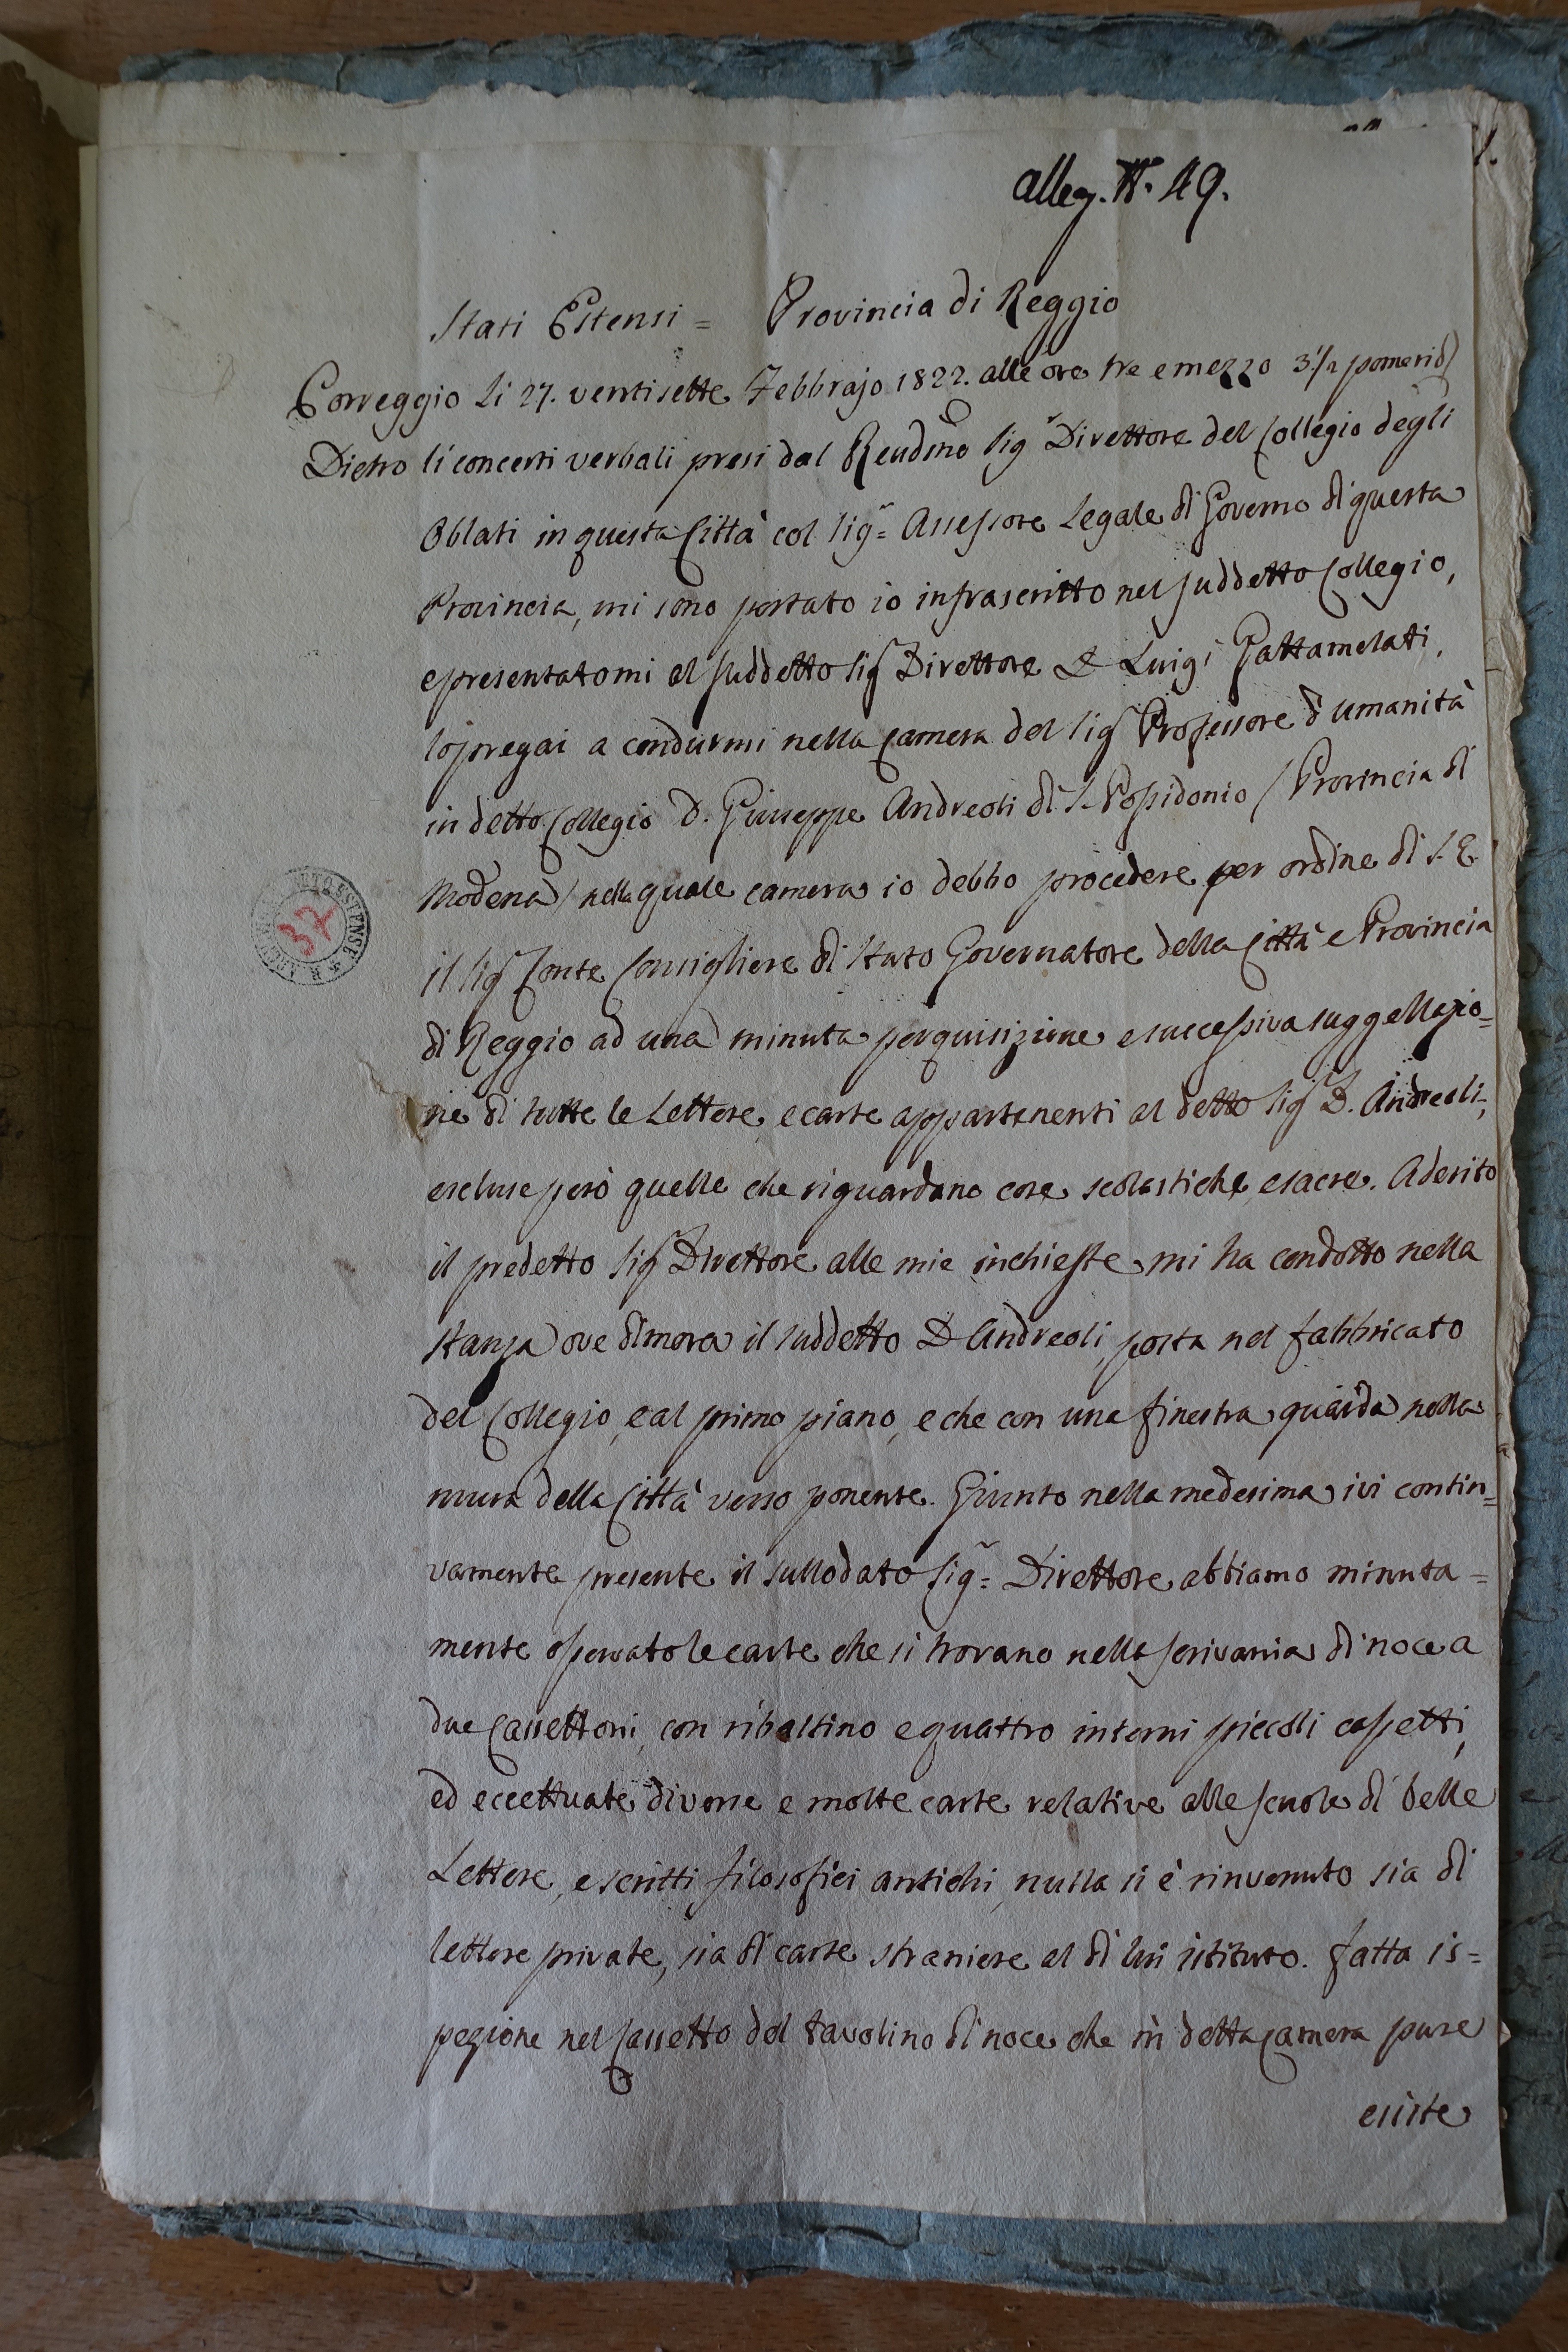 alleg. N. 49.
Stati Estensi = Provincia di Reggio
Correggio li 27. ventisette Febbrajo 1822. alle ore tre e mezzo 3 1/2 pomerid.
Dietro li concerti verbali presi dal Rendmo Sigr Direttore del Collegio degli
Oblati in questa Città col Sigr= Assessore Legale di Governo di questa
Provincia, mi sono portato io infrascritto nel suddetto Collegio,
e presentatomi al suddetto Sigr Direttore D. Luigi Gattamelati,
lo pregai a condurmi nella camera del Sigr Professore d'umanità
in detto Collegio D. Giuseppe Andreoli di S. Possidonio / Provincia di
Modena / nella quale camera io debbo procedere per ordine di S. E.
il Sigr Conte Consigliere di Stato Governatore della Città e Provincia
di Reggio ad una minuta perquisizione e successiva suggellazio=
ne di tutte le Lettere, e carte appartenenti al detto Sigr D. Andreoli,
escluse però quelle che riguardano cose scolastiche e sacre. Aderito
il predetto Sigr Direttore alle mie inchieste mi ha condotto nella
stanza ove dimora il suddetto D Andreoli, posta nel fabbricato
del Collegio, e al primo piano, e che con una finestra guarda nella
mura della Città verso ponente. Giunto nella medesima, ivi contin=
vamente presente il sullodato Sigr= Direttore abbiamo minuta=
mente osservato le carte che si trovano nella scrivania di noce a
due Cassettoni, con ribaltino e quattro interni piccoli cassetti,
ed eccettuate diverse e molte carte relative alle scuole di belle
Lettere, e scritti filosofici antichi, nulla si è rinvenuto sia di
lettere private, sia di carte straniere al di lui istituto. Fatta is=
pezione nel Cassetto del tavolino di noce che in detta camera pure
esiste
37